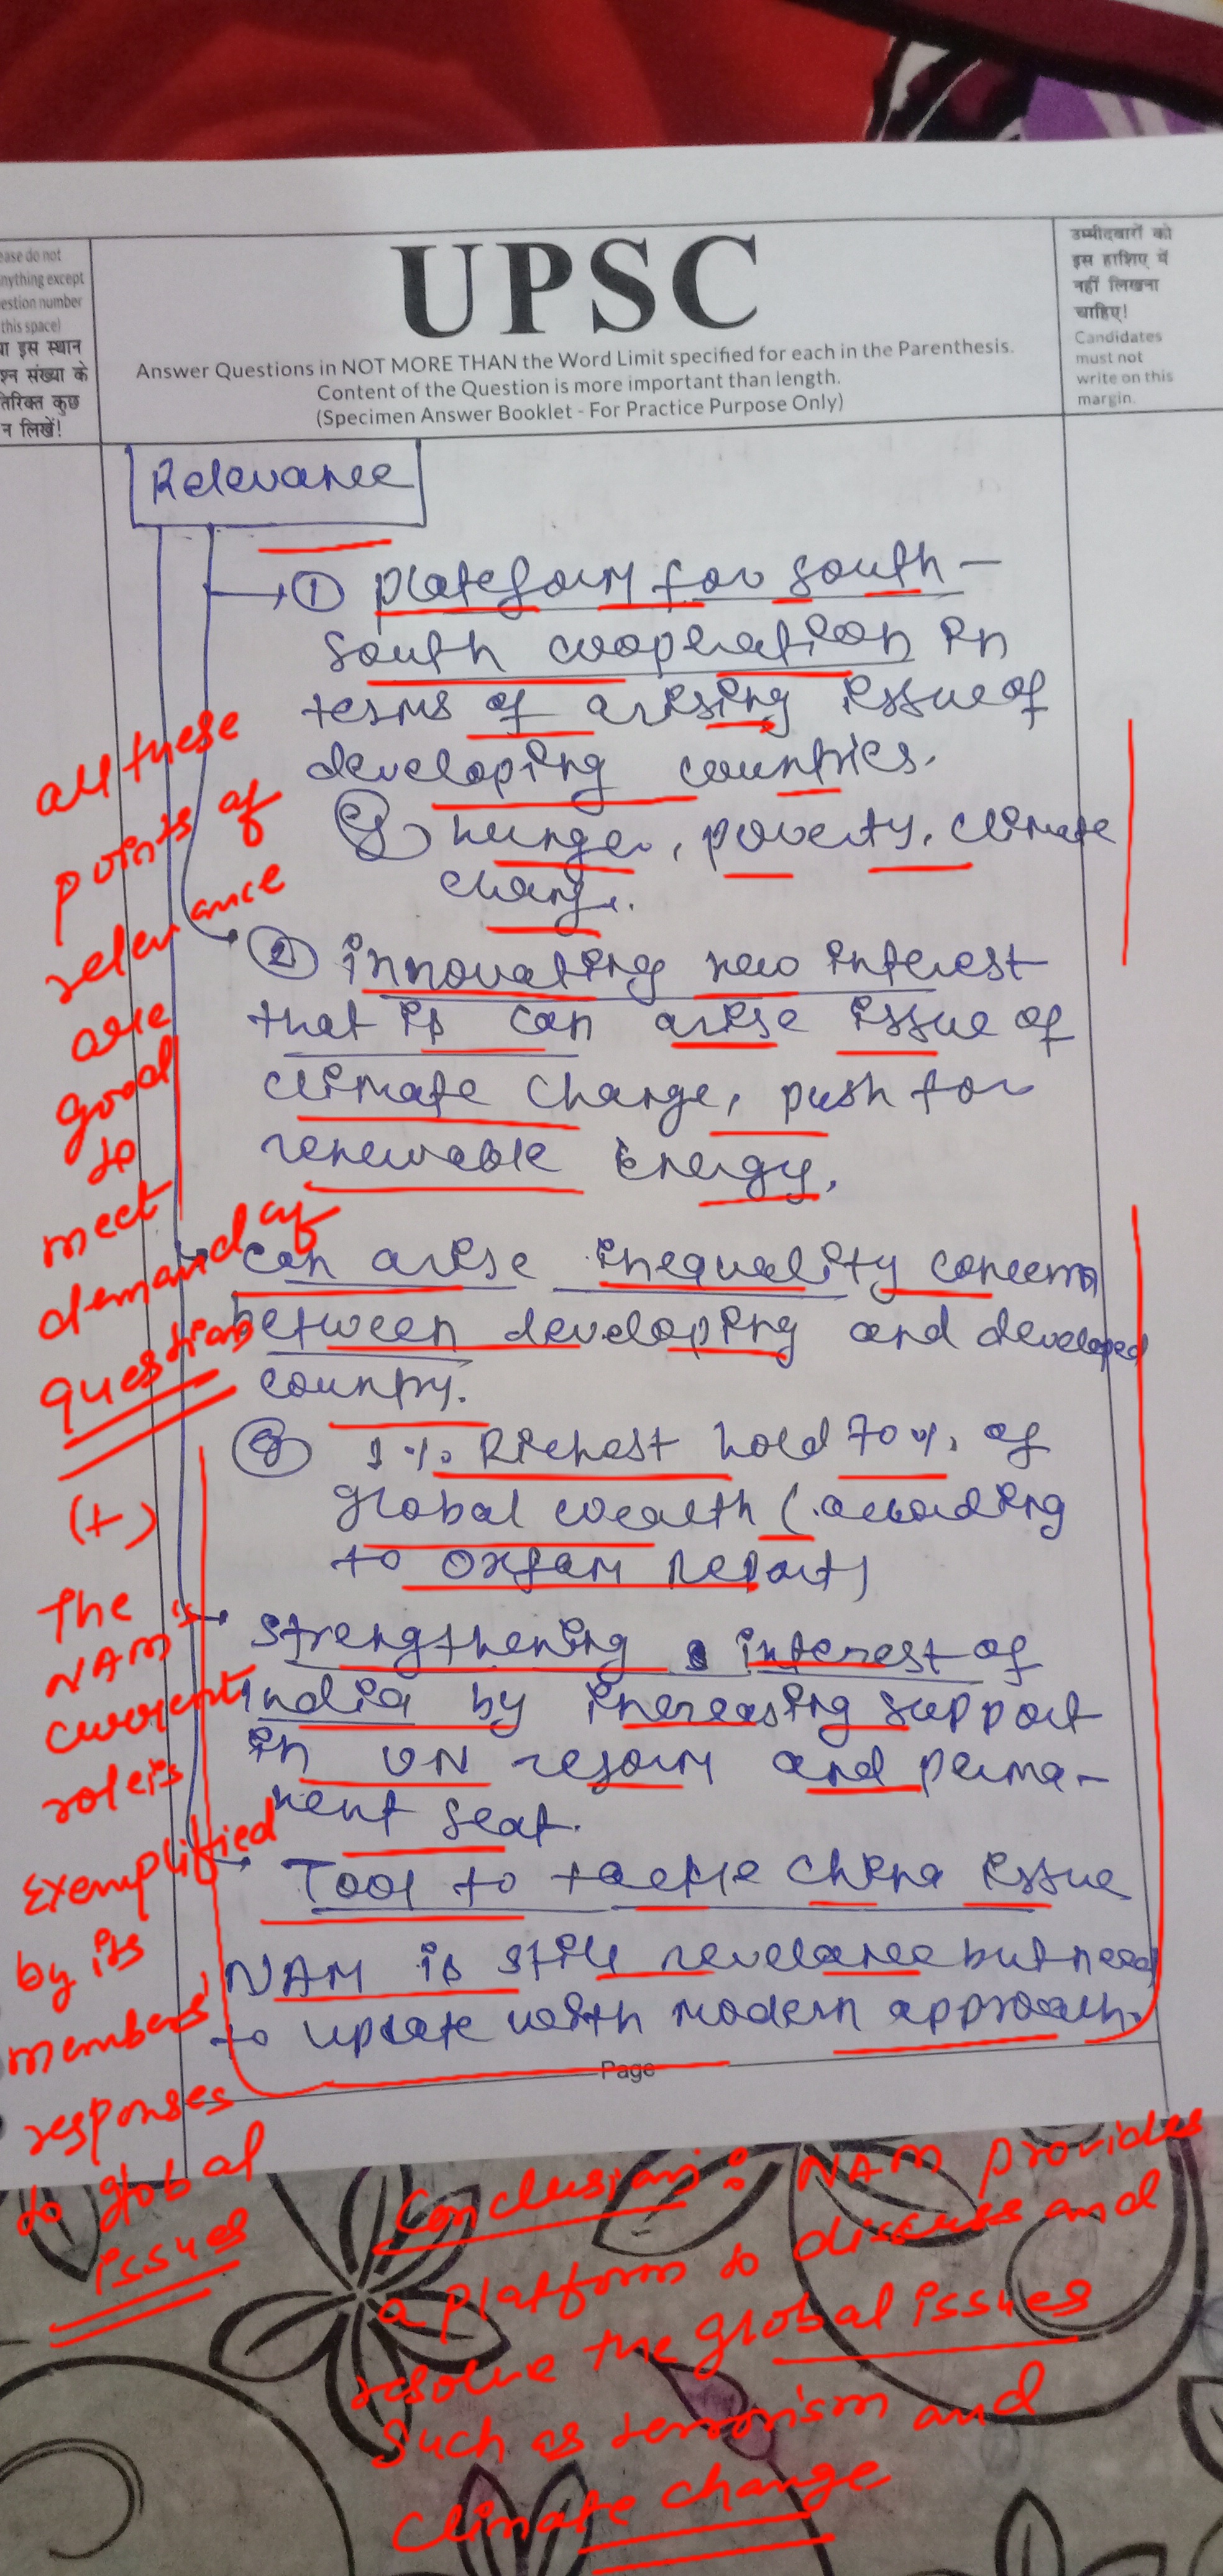 ease do not
nything except
estion number
this space)
या इस स्थान
श्न संख्या के
तिरिक्त कुछ
न लिखें!
UPSC
Answer Questions in NOT MORE THAN the Word Limit specified for each in the Parenthesis.
Content of the Question is more important than length.
(Specimen Answer Booklet - For Practice Purpose Only)
उम्मीदवारों को
इस हाशिए में
नहीं लिखना
चाहिए!
Candidates
must not
write on this
margin.
Relevance
① plateform for south -
south cooperation in
terms of arising issue of
developing countries.
eg hunger, poverty, climate
change.
② innovating new interest
that is can arise issue of
climate change, push for
renewable energy.
can arise inequality concern
between developing and developed
country.
eg 1% Richest hold 70% of
global wealth (according
to oxfam report)
strengthening interest of
india by increasing support
in UN reform and perma-
nent seat.
Tool to tackle china issue
NAM is still revelance but need
to update with modern approach.
Page
all these
points of
relevance
are
good
to
meet
demand of
question
(+)
The
NAM's
current
role is
Exemplified
by its
members'
responses
to global
issues
Conclusion: NAM provides
a platform to discuss and
resolve the global issues
such as terrorism and
climate change